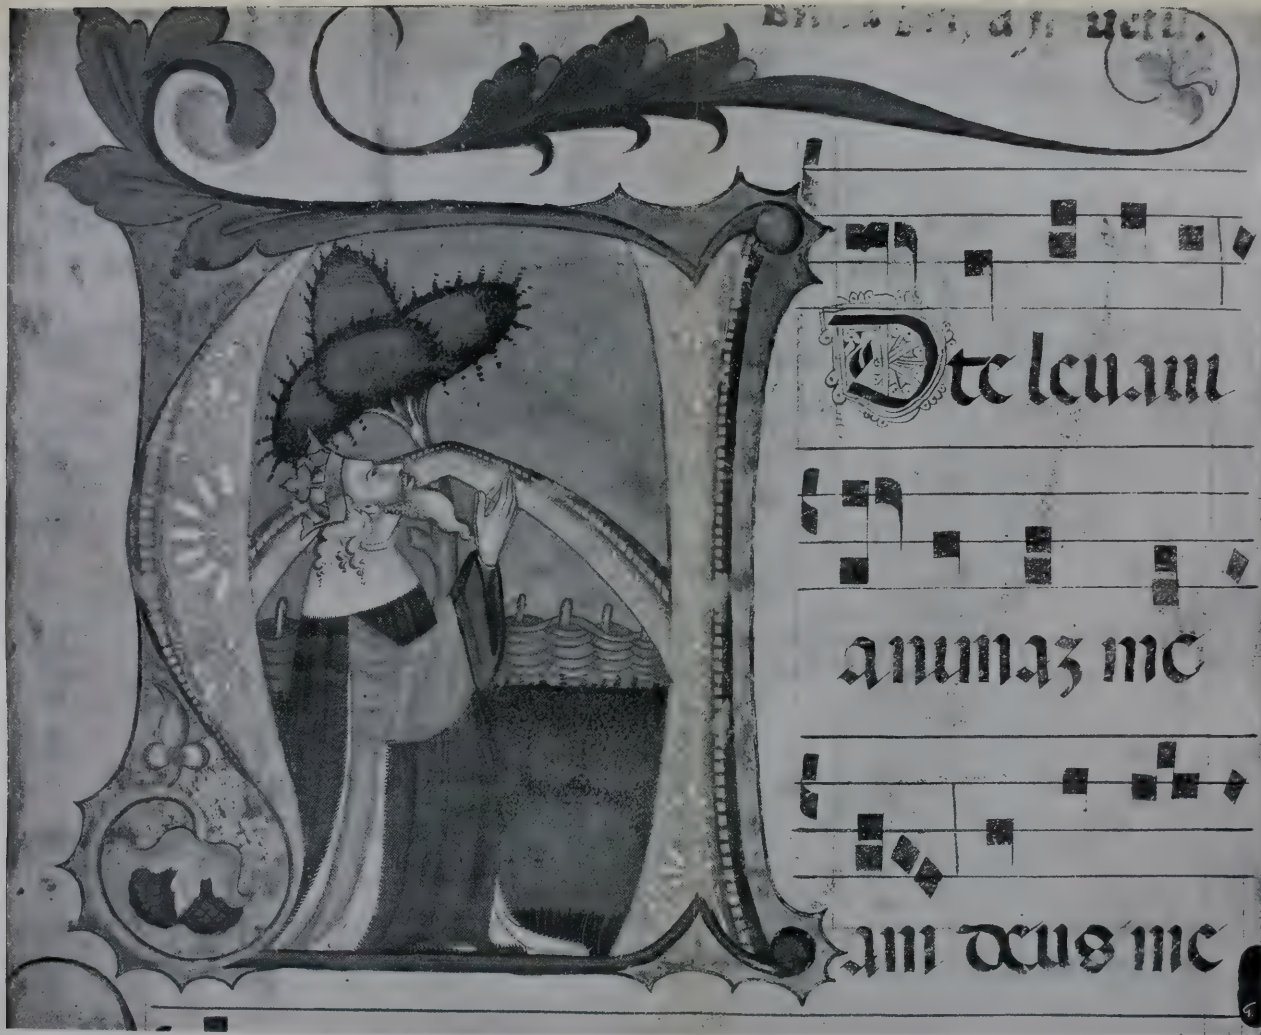 AD te leuaui
animaʒ me
am deus me